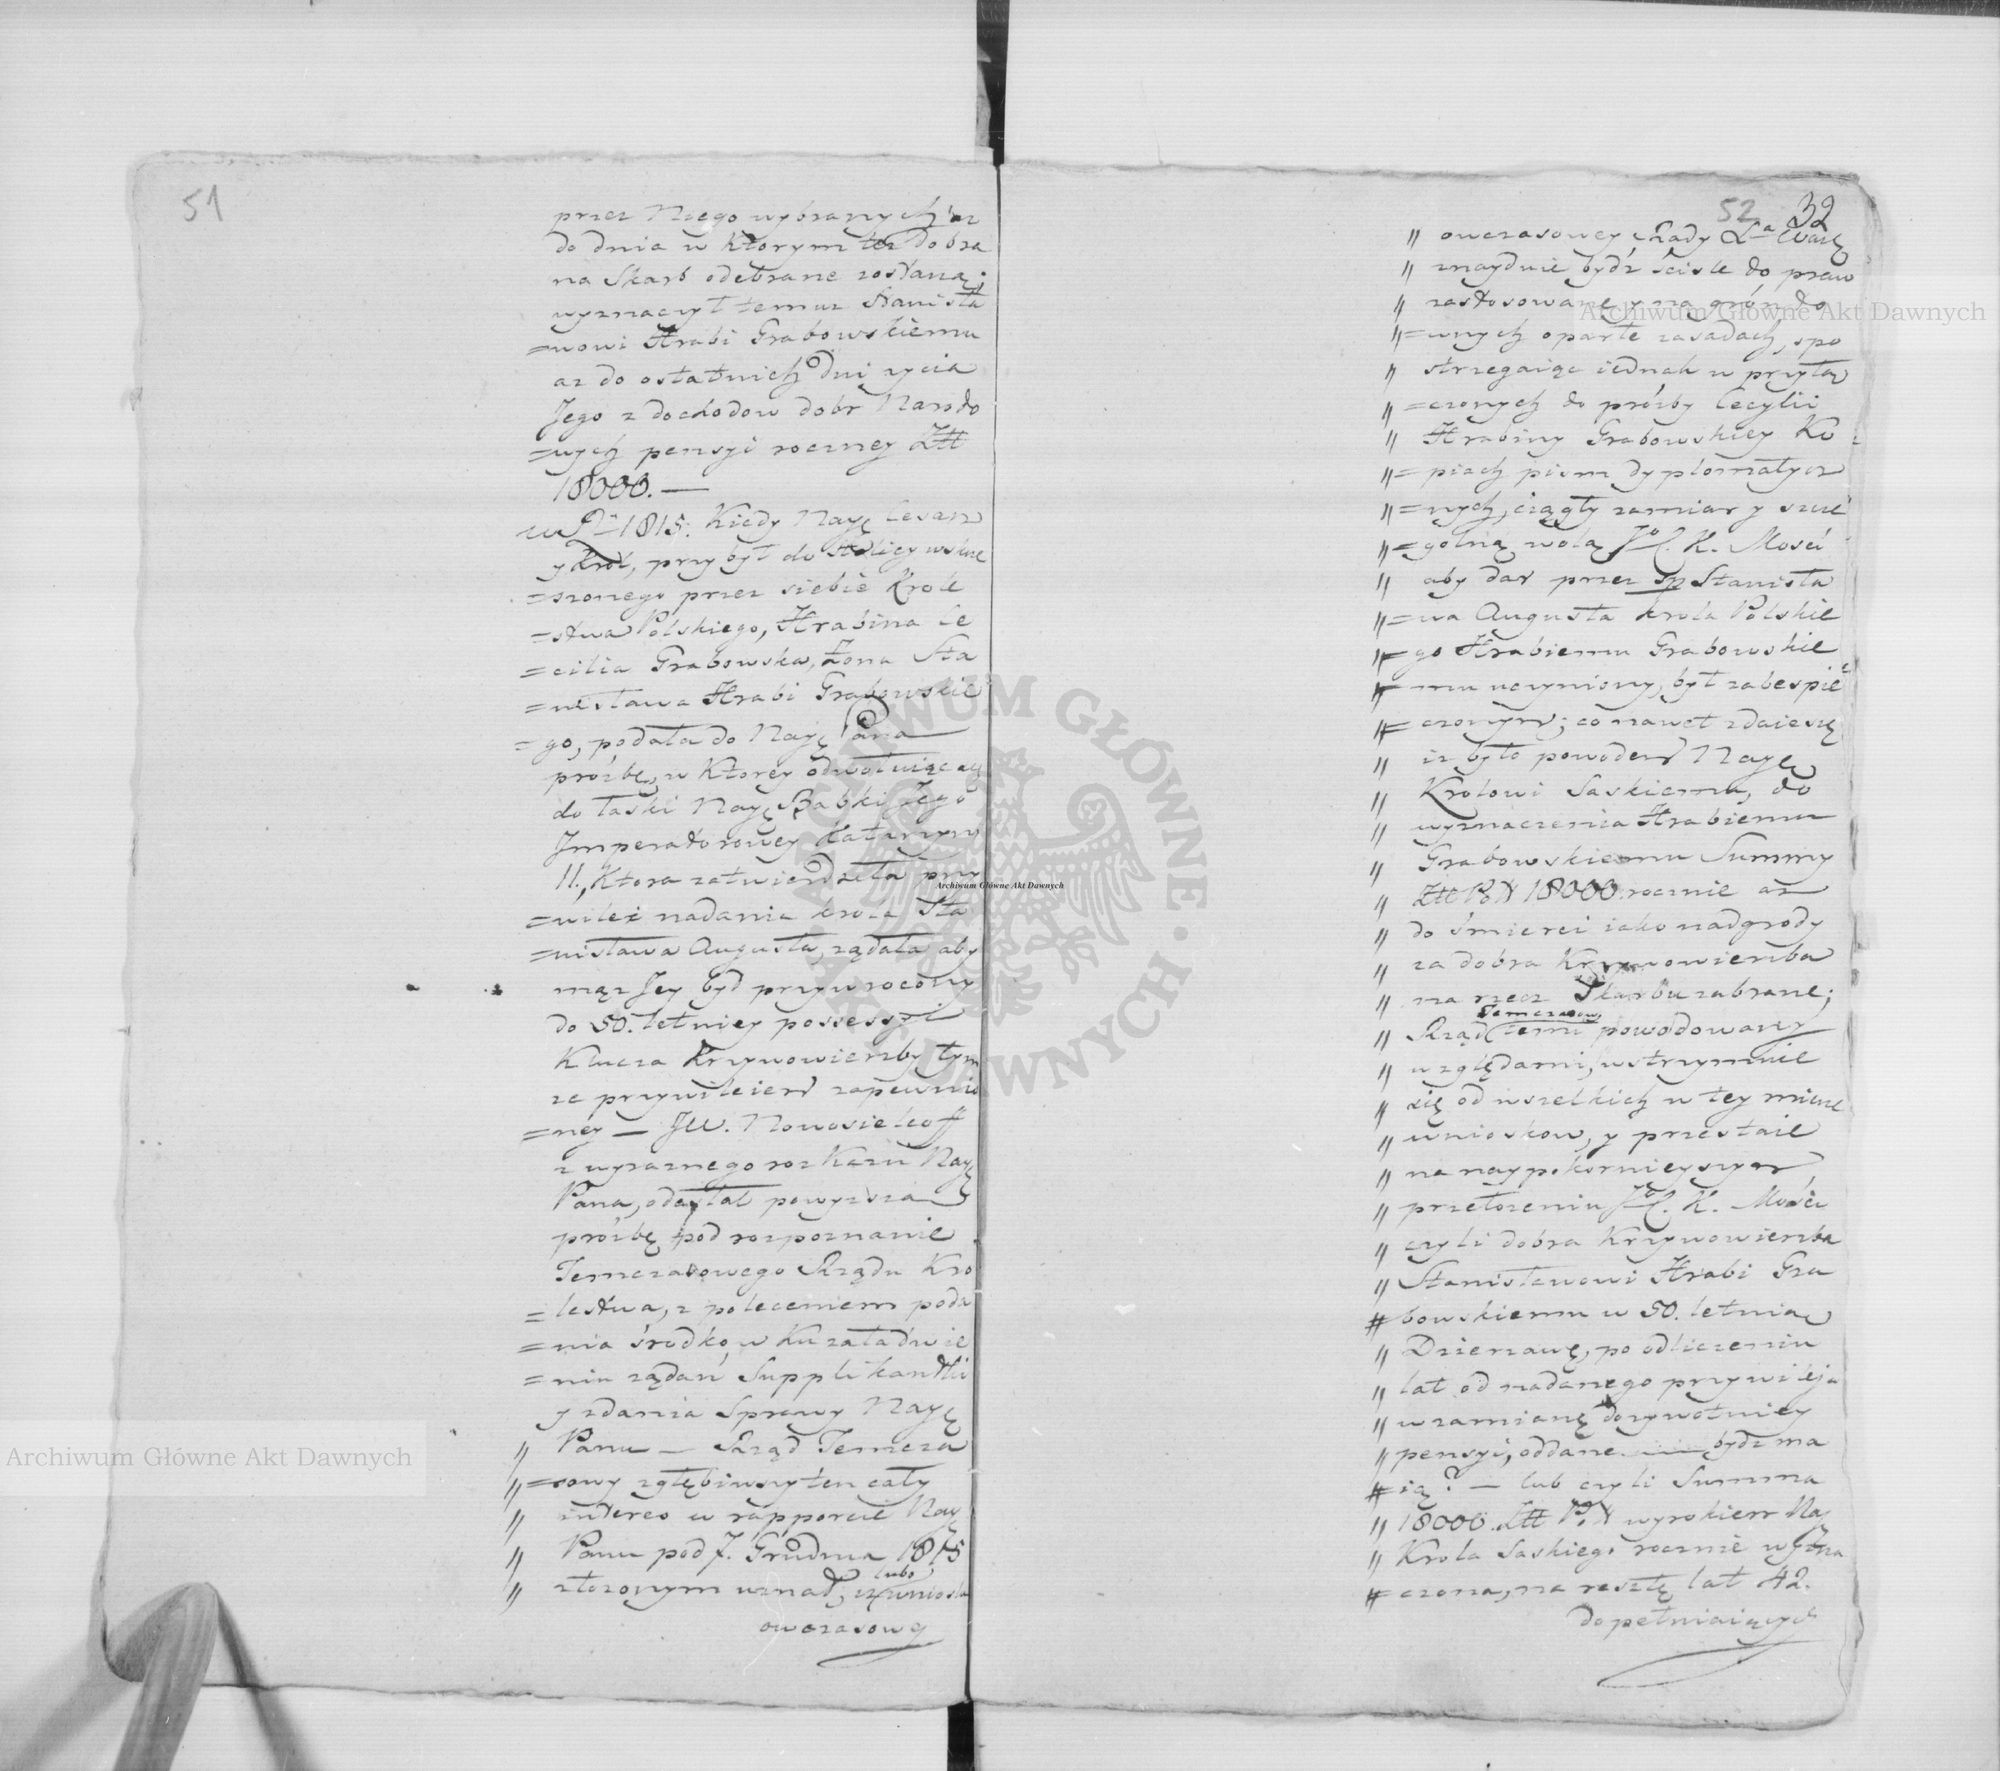 51
przez Niego wybranych az
do dnia w ktorym tez dobra
na Skarb odebrane zostaną;
wyznaczył temuz Stanisła
=wowi Hrabi Grabowskiemu
az do ostatnich dni zycia
Jego z dochodow dobr Narodo
=wych pensyi roczney Złł
18000. —
w R. 1815: Kiedy Nayę Cesarz
y Król, przybył do Stolicy wskrze
=szonego przez siebie Krole
=stwa Polskiego, Hrabina Ce
=cilia Grabowska, Zona Sta
=nisława Hrabi Grabowskie
=go, podała do Nayę Pana
prózbę, w ktorey odwołuiąc się
do łaski Nayę Babki Jego
Imperatorowey Katarzyny
II., Ktora zatwierdziła przy
=wiley nadania krola Sta
=nisława Augusta, ządała aby
mąz Jey był przywrocony
do 50. letniey possessyi
Klucza Krzywowierzby tym
ze przywileiem zapewnio
=ney — JW. Nowosielcoff
z wyraznego rozkazu Nayę
Pana, odesłał powyzszą
prózbę pod rozpoznanie
Temczasowego Rządu Kro
=lestwa, z poleceniem poda
=nia środkow ku załadwie
=niu ządań Supplikantki
y zdania Sprawy Nayę
" Panu — Rząd Temcza
"=sowy zgłębiwszy ten cały
" interes w rapporcie Nayę
" Panu pod 7. Grudnia 1815
" złozonym uznał, iz lubo wniosek
owczasowey
52 32
" owczasowey Rady
" znayduie bydź ściśle do praw
" zastosowane y na grónto
"=wnych oparte zasadach, spo
" strzegaiąc iednak w przyłą
"=czonych do prózby Cecylii
" Hrabiny Grabowskiey Ko
"=piach pism dyplomatycz
"=nych, ciągły zamiar y szcze
"=gólną wolą J. C. K. Mości
" aby dar przez sp Stanisła
"=wa Augusta krola Polskie
"=go Hrabiemu Grabowskie
"=mu uczyniony, był zabespie
"=czonym; co nawet zdaie się
" iz było powodem Nayę
" Krolowi Saskiemu, do
" wyznaczenia Hrabiemu
" Grabowskiemu Summy
" Złł Pol 18000 rocznie az
" do śmierci iako nadgrody
" za dobra Krzywowierzba
" na rzecz Skarbu zabrane;
" Rząd Temczasowy temi powodowany
" względami, wstrzymuie
" się od wszelkich w tey mierze
" wnioskow, y przestaie
" na naypokornieyszym
" przełozeniu J. C. K. Mości
" czyli dobra Krzywowierzba
" Stanisławowi Hrabi Gra
"=bowskiemu w 50. letnią
" Dzierzawę, po odliczeniu
" lat od nadanego przywileju
" w zamianę dozywotniey
" pensyi, oddane bydź ma
"=ią? — lub czyli Summa
" 18000. Złł Pol wyrokiem Nayę
" Krola Saskiego rocznie wyzna
"=czona, na resztę lat 42.
dopełniaiących
Archiwum Główne Akt Dawnych
Archiwum Główne Akt Dawnych
Archiwum Główne Akt Dawnych
ARCHIWUM GŁÓWNE AKT DAWNYCH